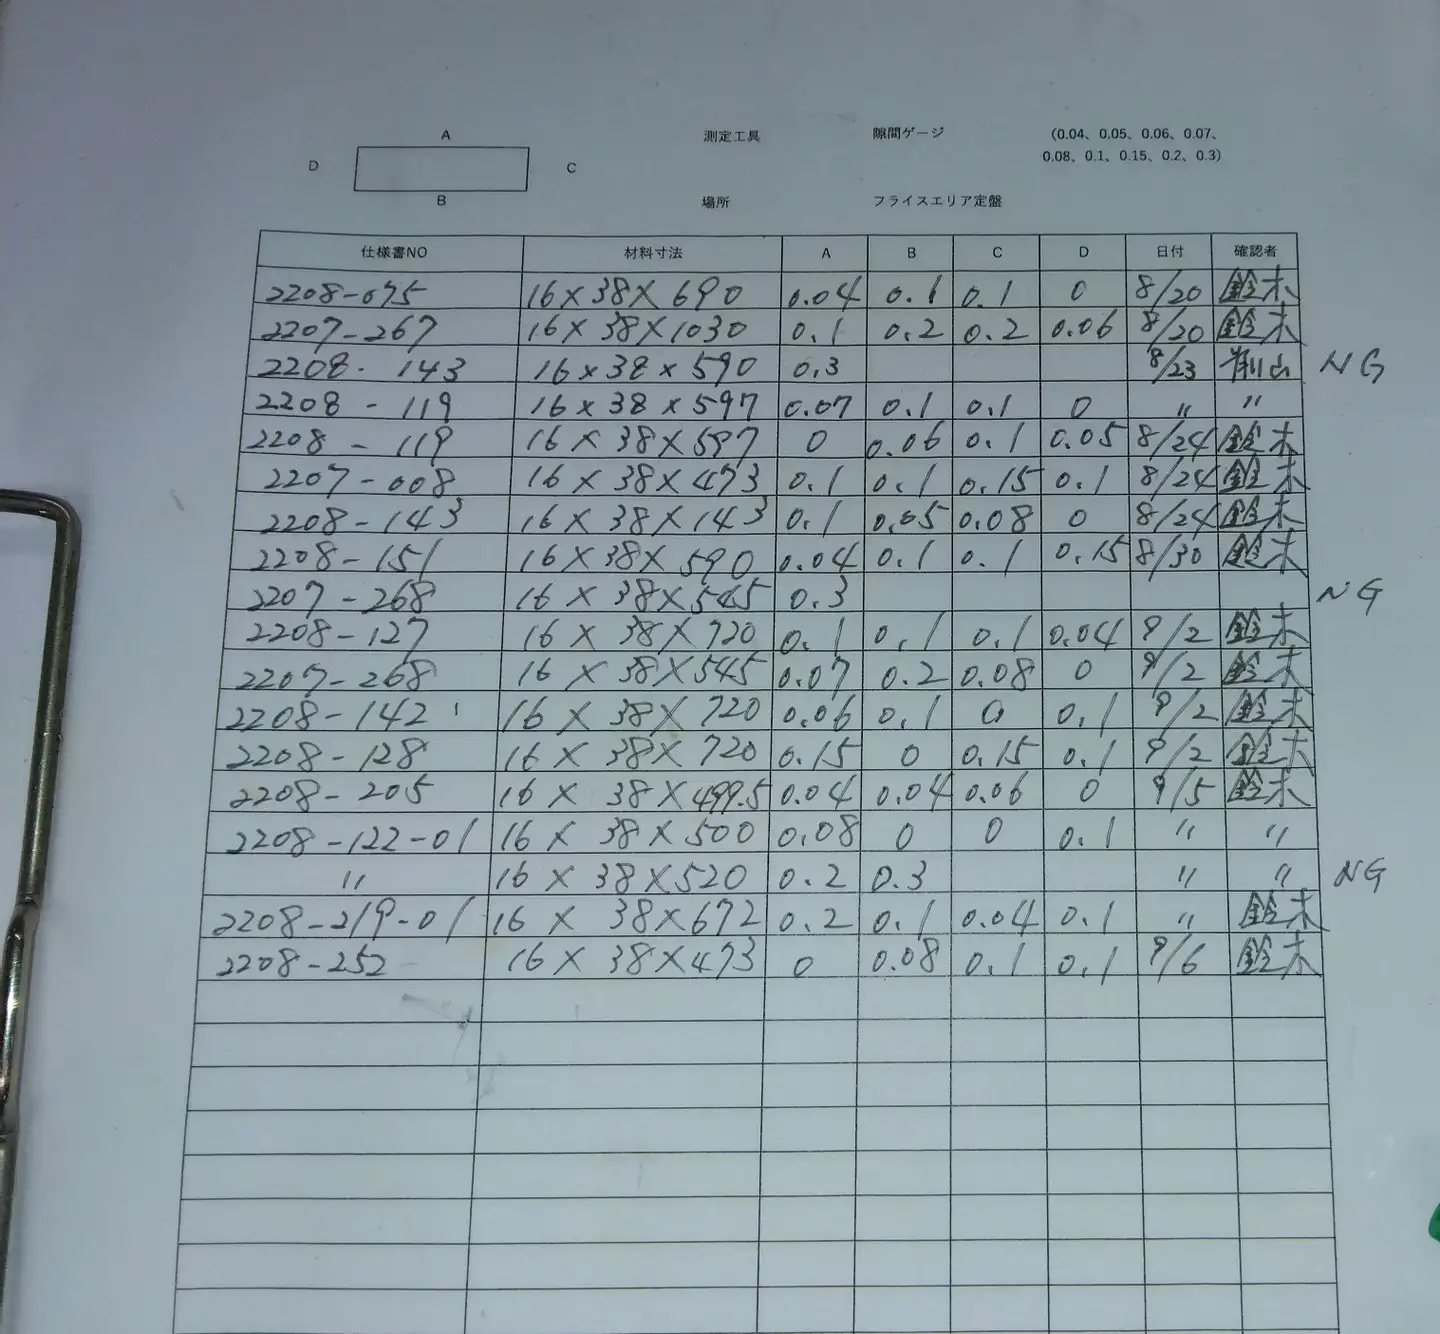 A 測定工具 隙間ゲージ (0.04、0.05、0.06、0.07、
D C 0.08、0.1、0.15、0.2、0.3)
B 場所 フライスエリア定盤
仕様書NO 材料寸法 A B C D 日付 確認者
2208-075 16×38×690 0.04 0.1 0.1 0 8/20 鈴木
2207-267 16×38×1030 0.1 0.2 0.2 0.06 8/20 鈴木
2208-143 16×38×590 0.3 8/23 NG
2208-119 16×38×597 0.07 0.1 0.1 0 〃 〃
2208-119 16×38×597 0 0.06 0.1 0.05 8/24 鈴木
2207-008 16×38×473 0.1 0.1 0.15 0.1 8/24 鈴木
2208-143 16×38×143 0.1 0.05 0.08 0 8/24 鈴木
2208-151 16×38×590 0.04 0.1 0.1 0.15 8/30 鈴木
2207-268 16×38×545 0.3 NG
2208-127 16×38×720 0.1 0.1 0.1 0.04 9/2 鈴木
2207-268 16×38×545 0.07 0.2 0.08 0 9/2 鈴木
2208-142 16×38×720 0.06 0.1 0 0.1 9/2 鈴木
2208-128 16×38×720 0.15 0 0.15 0.1 9/2 鈴木
2208-205 16×38×499.5 0.04 0.04 0.06 0 9/5 鈴木
2208-122-01 16×38×500 0.08 0 0 0.1 〃 〃
〃 16×38×520 0.2 0.3 〃 〃 NG
2208-219-01 16×38×672 0.2 0.1 0.04 0.1 〃 鈴木
2208-252 16×38×473 0 0.08 0.1 0.1 9/6 鈴木